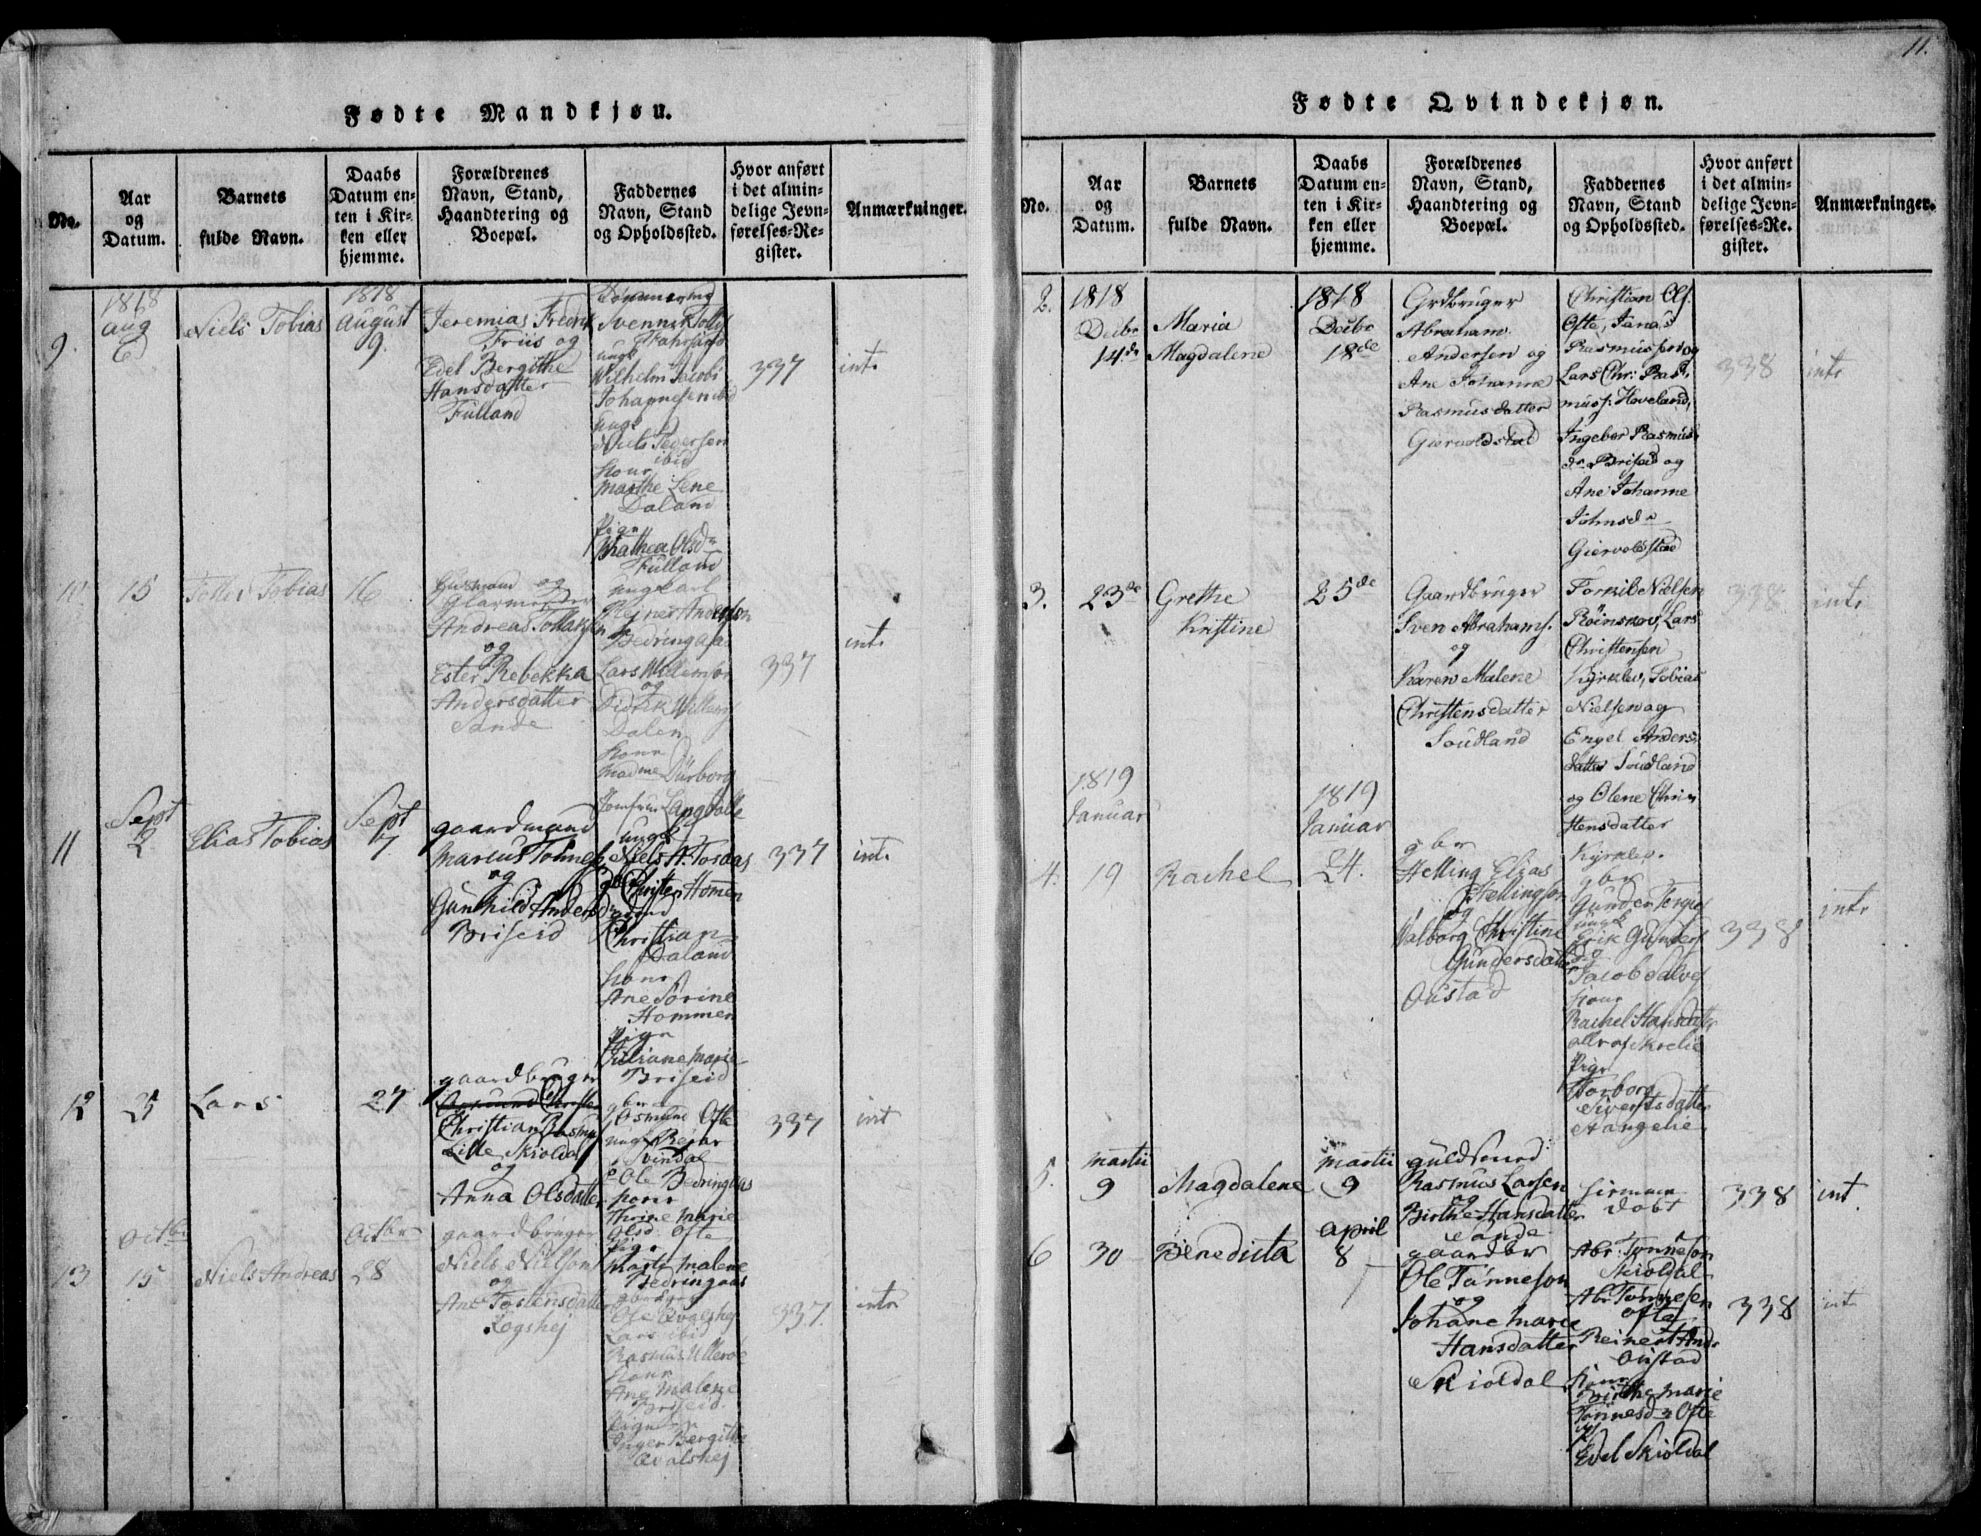 11.
Fødte Mandkjøn.
No.
Aar
og
Datum.
Barnets
fulde Navn.
Daabs
Datum en-
ten i Kir-
ken eller
hjemme.
Forældrenes
Navn, Stand,
Haandtering og
Boepæl.
Faddernes
Navn, Stand
og Opholdssted.
Hvor anført
i det almin-
delige Jevn-
førelses-Re-
gister.
Anmærkninger.
9.
1818
Aug
6
Niels Tobias
1818
August
9.
Jeremias Fredrik
Friis og
Edel Bergithe
Hansdatter
Fulland
ungk
Wilhelm Jacobs
Johannesen ibid
ungk
Niels Pedersen
ibid
Kone
Marthe Lene
Daland
Pige
Olsd
Fulland
337
intr
10
15
Tollev Tobias
16
Huusmand og
Glarmester
Andreas Tollaksen
og
Ester Rebekka
Andersdatter
Sande
ungkarl
Bedringaas
Lars Willumsen
og
Didrik Willums
Dalen
Kone
madme Dürborg
Jomfrue Langdalle
337
intr
11
Sept
2
Elias Tobias
Sept
7.
gaardmand
Marcus Tønnes
og
Gunhild Anders
Briseid
ungk
Christen Homen
Christian
Daland
Kone
Ane Sørine
Hommen
Pige
Juliane Marie
Briseid
337
intr
12
25
Lars
27
gaardbruger
Christian Rasmus
Lille Skioldal
og
Anna Olsdatter
gbr
Osmund Ofte
ungk
Svindal
Ole Bedringaas
kone
Thrine Marie
Olsd. Ofte
Pige
Marte Malene
Bedringaas
337
intr
13
Octbr
15
Niels Andreas
Octbr
28
gaardbruger
Niels Nielson
og
Ane Tostensdatter
Røgshej
gbrugr
Ole Qvalshej
Lars ibid
Rasmus Ulleroe
Kone
Ane Malene
Briseid
Pige
Inger Bergitte
Qvalshej
337.
intr
Fødte Qvindekjøn.
No.
Aar
og
Datum.
Barnets
fulde Navn.
Daabs
Datum en-
ten i Kir-
ken eller
hjemme.
Forældrenes
Navn, Stand,
Haandtering og
Boepæl.
Faddernes
Navn, Stand
og Opholdssted.
Hvor anført
i det almin-
delige Jevn-
førelses-Re-
gister.
Anmærkninger.
2.
1818
Decbr
14de
Maria
Magdalene
1818
Decbr
18de
Grdbruger
Abraham
Andersen og
Ane Johanne
Rasmusdatter
Giervoldstad
Christian Ols.
Ofte, Jonas
Rasmussen og
Lars Chr: Ras-
muss: Hoveland,
Ingebor Rasmus-
dr Briseid og
Ane Johanne
Johnsdr
Giervoldstad
338
intr
3.
23de
Grethe
Kristine
25de
Gaardbruger
Sven Abrahams.
og
Karen Malene
Christensdatter
Soudland
Torkil Nielsen
Røinskov, Lars
Christensen
Kyrklev, Tobias
Nielsen og
Engel Anders-
datter Soudland
og Olene Chri-
stensdatter
Kyrklev.
338
intr
4.
1819
Januar
19
Rachel
1819
Januar
24.
gbr
Helling Elias
Hellingson
og
Valborg Christine
Gundersdatter
Oustad
gbr
Gunder Tergies
ungk
Erik Gunders
og
Jacob Salves
Kone
Rachel Hansdatter
alle af Skoelie
Pige
Torborg
Sivertsdatter
Hangelie
338
intr
5.
Martii
9
Magdalene
Martii
9
guldsmed
Rasmus Larsen
og
Birthe Hansdatter
Sande
hiemme
døbt
338
int.
6
30
Benedicta
April
8
gaardbr
Ole Tønneson
og
Johane Marie
Hansdatter
Skioldal
Abr: Tønneson
Skioldal
Abr Tønnesen
Ofte
Reinert Andr
Oustad
Kone
Birthe Marie
Tønnesdr Ofte
Edel Skioldal
338
intr